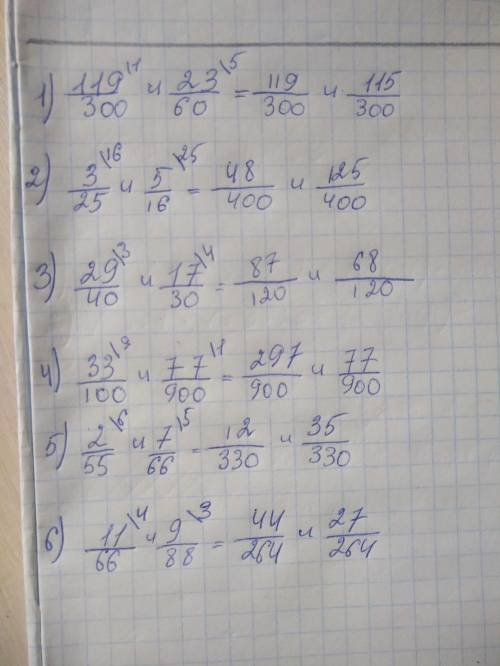 1) 119/300 \1 и 23/60 \5 = 119/300 и 115/300
2) 3/25 \16 и 5/16 \25 = 48/400 и 125/400
3) 29/40 \3 и 17/30 \4 = 87/120 и 68/120
4) 33/100 \9 и 77/900 \1 = 297/900 и 77/900
5) 2/55 \6 и 7/66 \5 = 12/330 и 35/330
6) 11/66 \4 и 9/88 \3 = 44/264 и 27/264